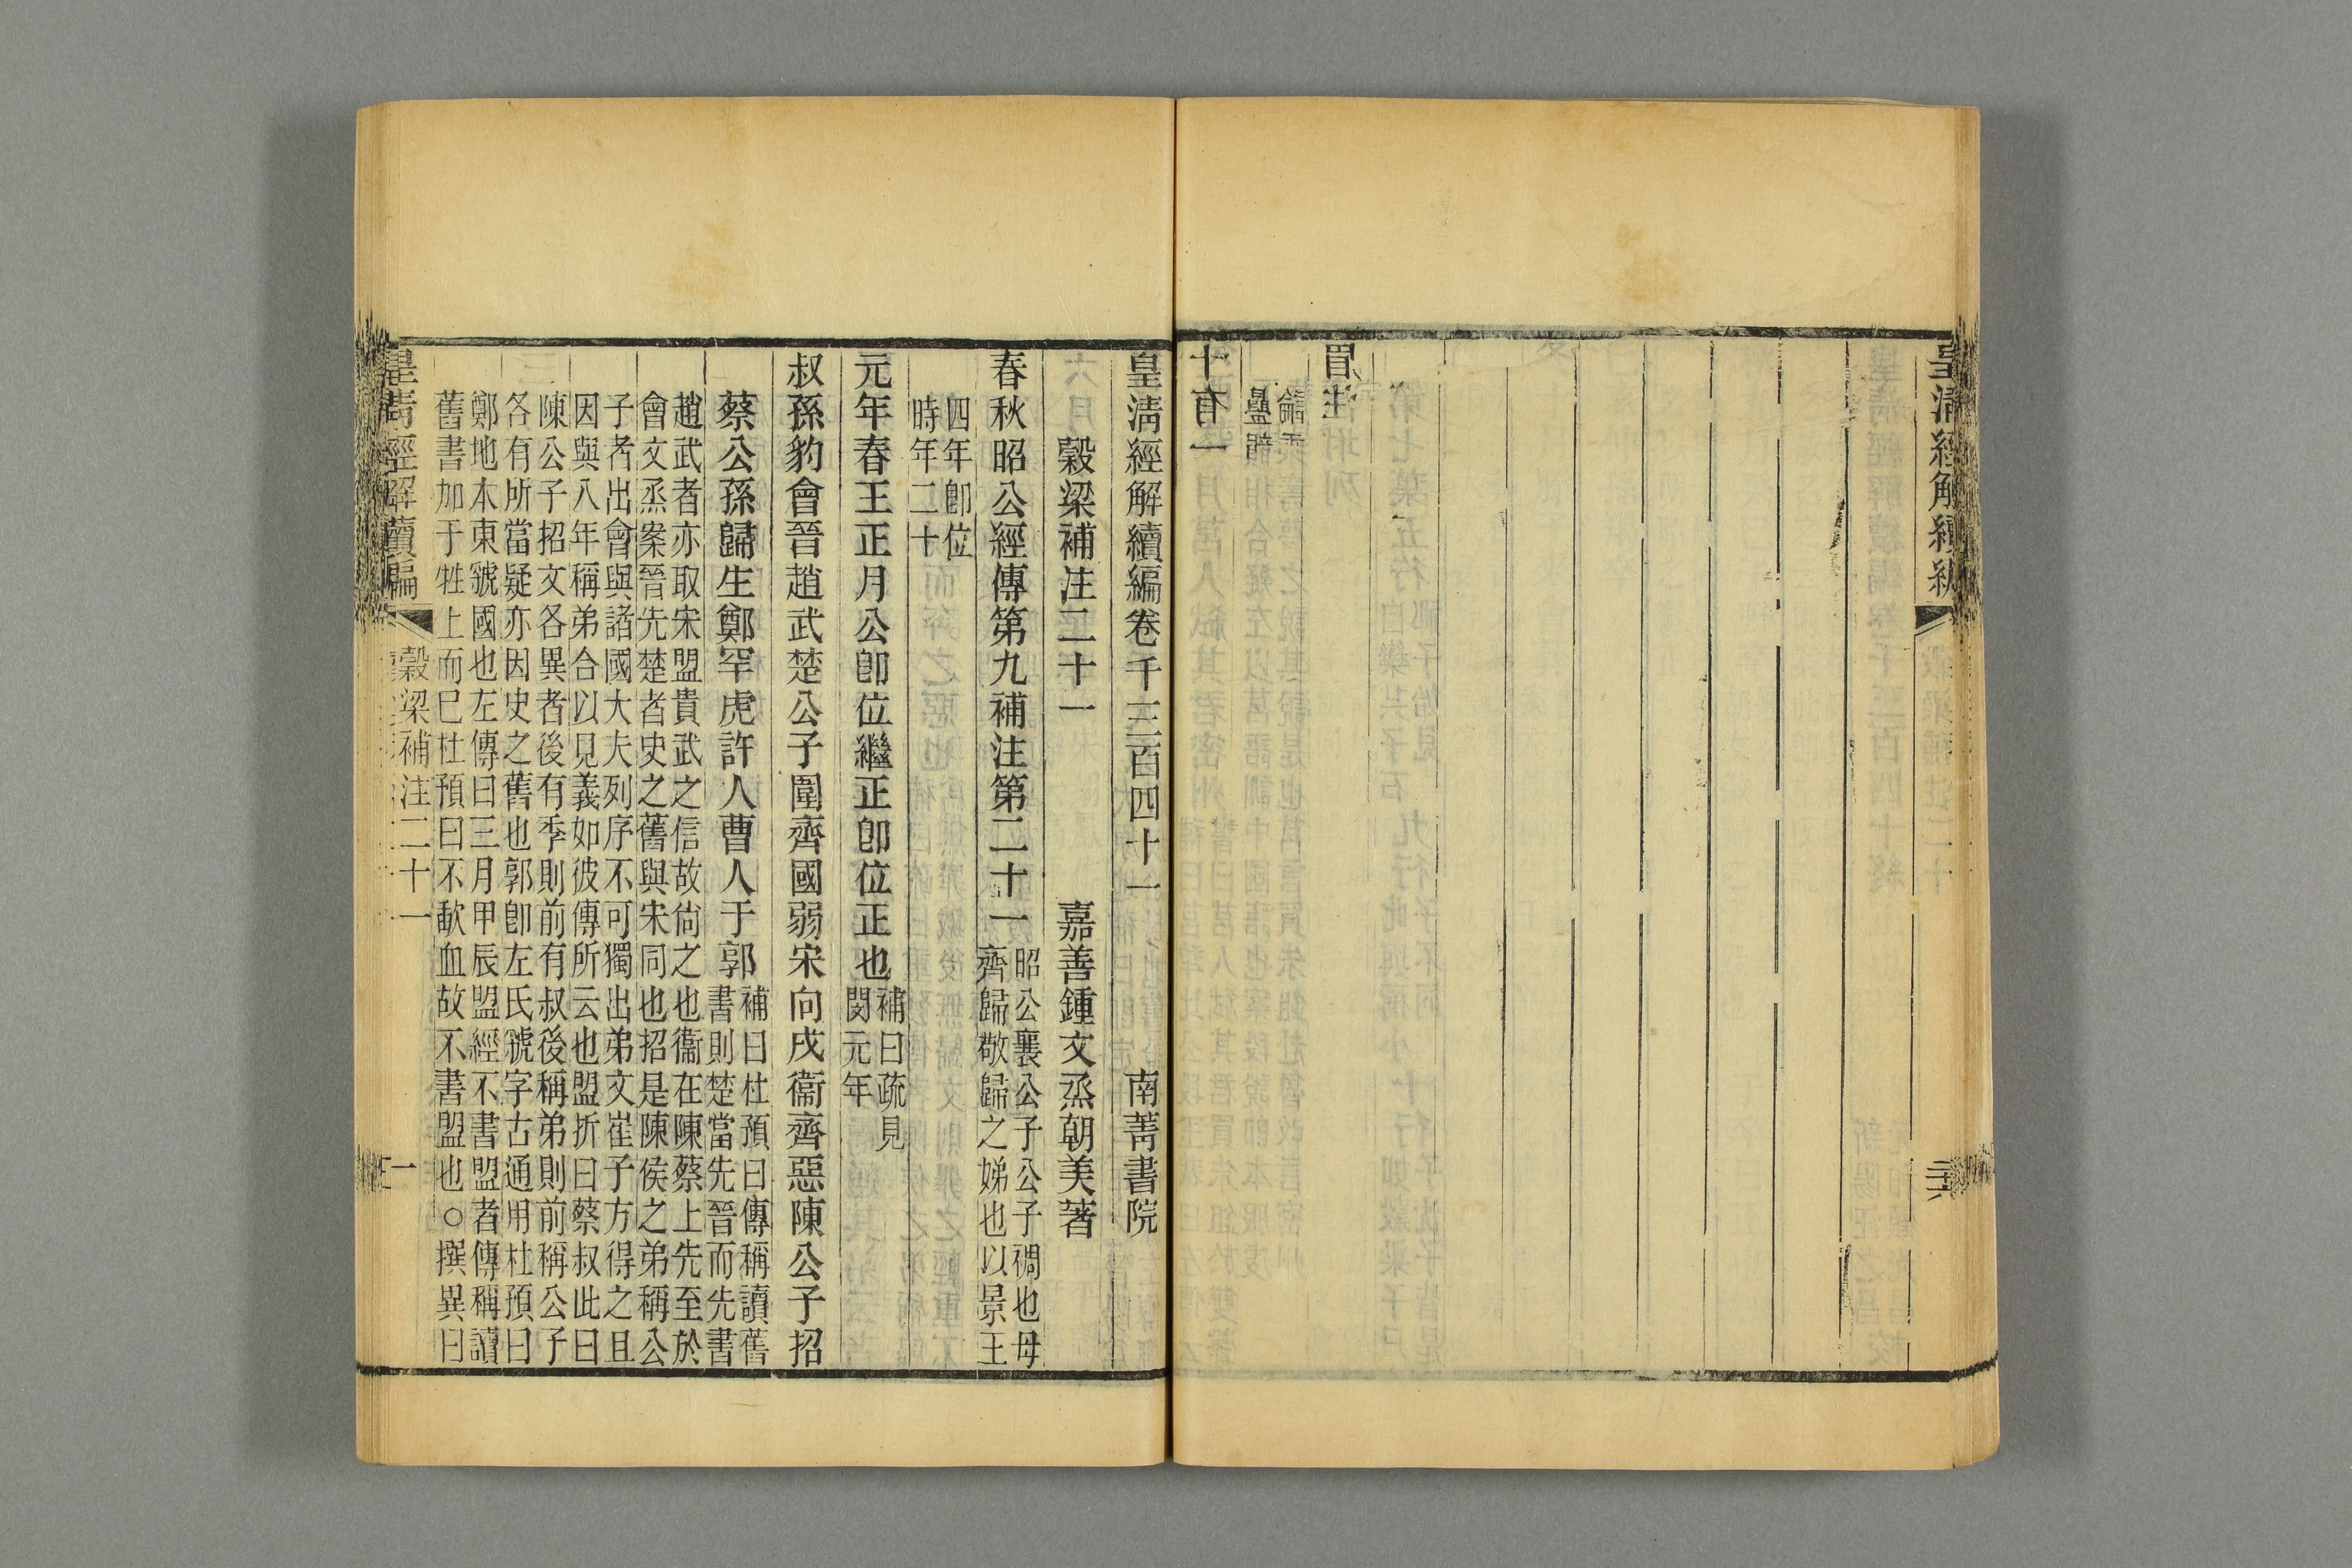 皇清經解續編
三十六
皇清經解續編卷千三百四十一 南菁書院
穀梁補注二十一 嘉善鍾文烝朝美著
春秋昭公經傳第九補注第二十一
昭公襄公子公子裯也母
齊歸敬歸之娣也以景王
四年卽位
時年二十
元年春王正月公卽位繼正卽位正也
補曰疏見
閔元年
叔孫豹會晉趙武楚公子圍齊國弱宋向戌衞齊惡陳公子招
蔡公孫歸生鄭罕虎許人曹人于郭
補曰杜預曰傳稱讀舊
書則楚當先晉而先書
趙武者亦取宋盟貴武之信故尙之也衞在陳蔡上先至於
會文烝案晉先楚者史之舊與宋同也招是陳侯之弟稱公
子者出會與諸國大夫列序不可獨出弟文崔子方得之且
因與八年稱弟合以見義如彼傳所云也盟折曰蔡叔此曰
陳公子招文各異者後有季則前有叔後稱弟則前稱公子
各有所當疑亦因史之舊也郭卽左氏虢字古通用杜預曰
鄭地本東虢國也左傳曰三月甲辰盟經不書盟者傳稱讀
舊書加于牲上而已杜預曰不歃血故不書盟也○撰異曰
皇淸經解續編
穀梁補注二十一
一